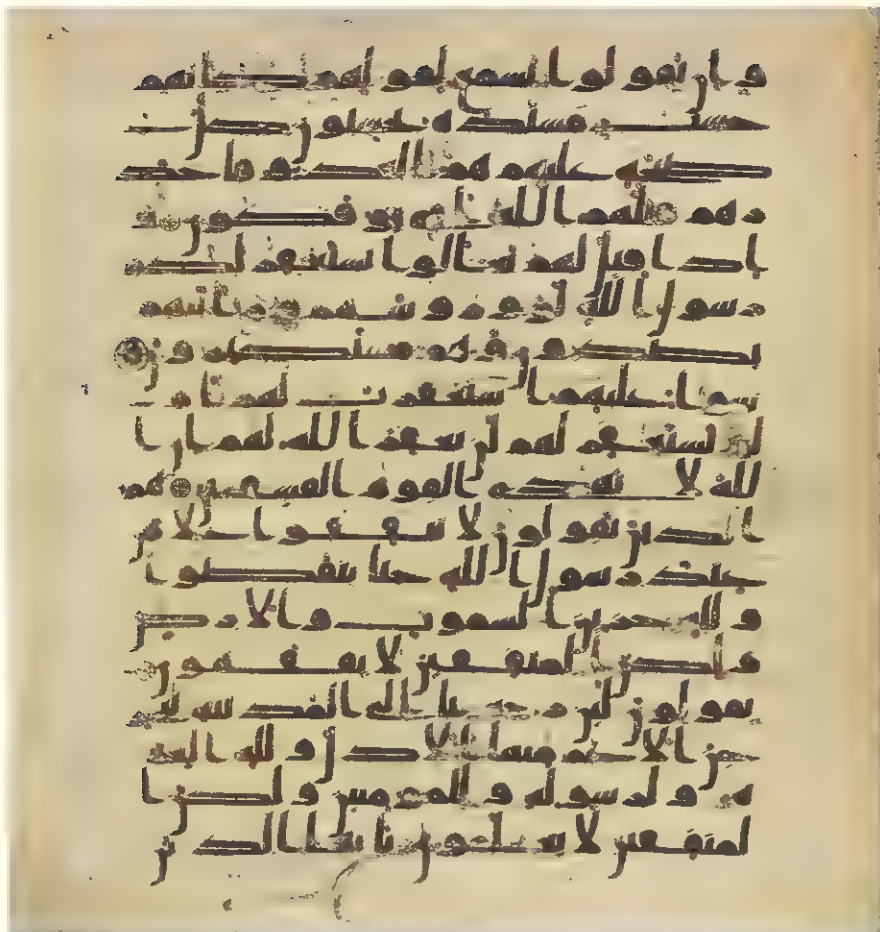 وان يقولوا تسمع لقولهم كانهم
خشب مسندة يحسبون كل
صيحة عليهم هم العدو فاحذ
رهم قتلهم الله انى يوفكون و
اذا قيل لهم تعالوا يستغفر لكم
رسول الله لووا روسهم ورايتهم
يصدون وهم مستكبرون
سوا عليهم استغفرت لهم ام
لم تستغفر لهم لن يغفر الله لهم ان ا
لله لا يهدي القوم الفسقين هم
الذين يقولون لا تنفقوا على من
عند رسول الله حتى ينفضوا
ولله خزين السموت والارض
ولكن المنفقين لا يفقهون
يقولون لين رجعنا الى المدينة لي
خرجن الاعز منها الاذل ولله العز
ة ولرسوله وللمومنين ولكن ا
لمنفقين لا يعلمون يايها الذين